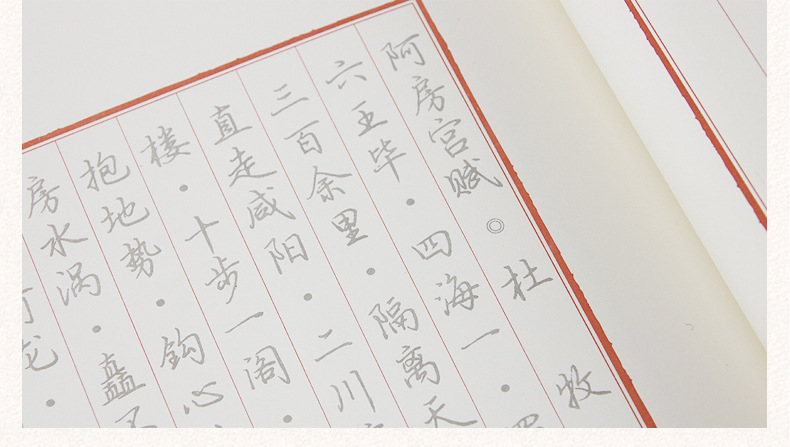 阿房宫赋◎杜牧
六王毕·四海一·
三百余里·隔离天
直走咸阳·二川
楼·十步一阁·
抱地势·钩心
房水涡·矗不
龙·